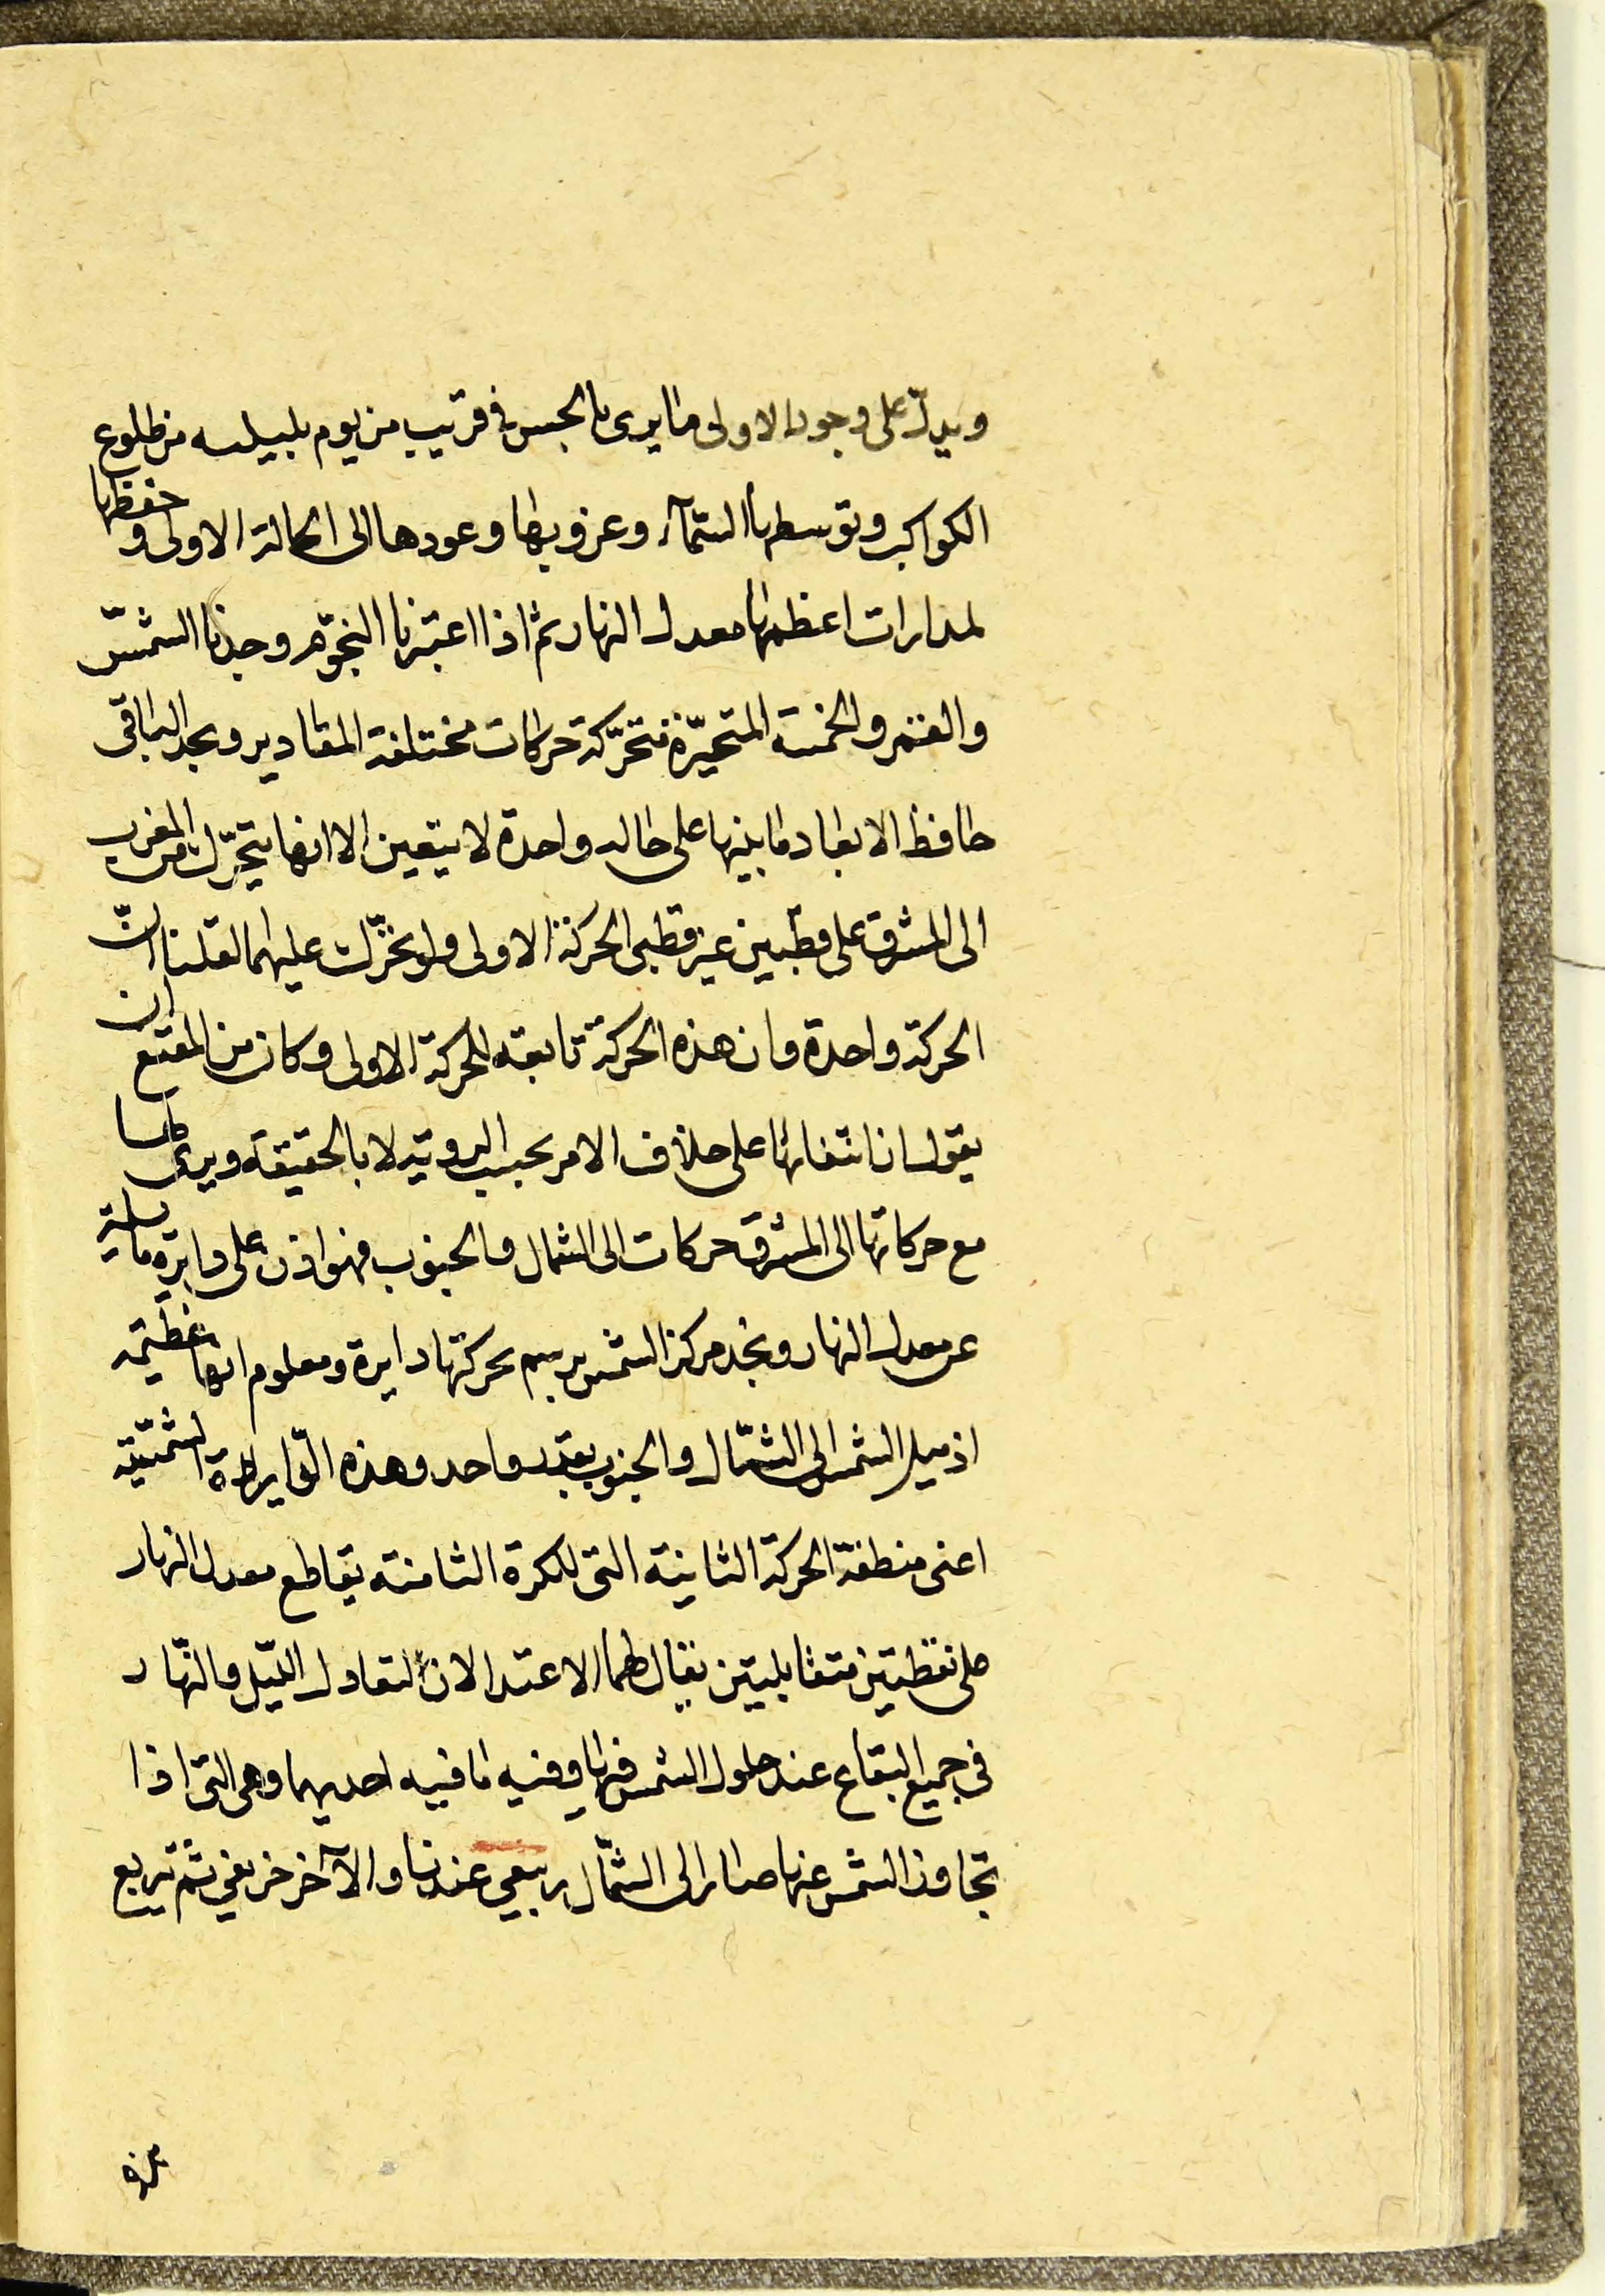 ويدلّ على وجود الاولى ما يرى بالحس فى قريب من يوم بليلته من طلوع
الكواكب وتوسطها السّمآء وغروبها وعودها الى الحالة الاولى وحفظها
لمدارات اعظمها معدل النهار ثم اذا اعتبرنا النجوم وجدنا الشمس
والقمر والخمسة المتحيّرة متحرّكة حركات مختلفة المقادير ونجد الباقى
حافظ الابعاد ما بينها على حاله واحدة لا يتغير الا انها يتحرّك من المغرب
الى المشرق على قطبين غير قطبى الحركة الاولى ولو تحرّك عليهما لقلنا انّ
الحركة واحدة وان هذه الحركة تابعة للحركة الاولى وكان من المقنع ان
يقول ان انتقالها على خلاف الامر بحسب الروية لا بالحقيقة ويرى لها
مع حركاتها الى المشرق حركات الى الشمال والجنوب فهو اذن على دايرة مايلة
عن معدل النهار ونجد مركز الشمس يرسم بحركتها دايرة ومعلوم انها عظيمة
اذ ميل الشمس الى الشمّال والجنوب بقدر واحد وهذه الدّايرة الشمسية
اعنى منطقة الحركة الثانية التى للكرة الثامنة يقاطع معدل النهار
على نقطتين متقابلتين يقال لهما الاعتدالان لتعادل اللّيل والنّهار
فى جميع البقاع عند حلول الشمس فيها وفيه ما فيه احديهما وهى التى اذا
تجاوز الشمس عنها صار الى الشمّال ربيعى عندنا والآخر خريفى ثم تربع